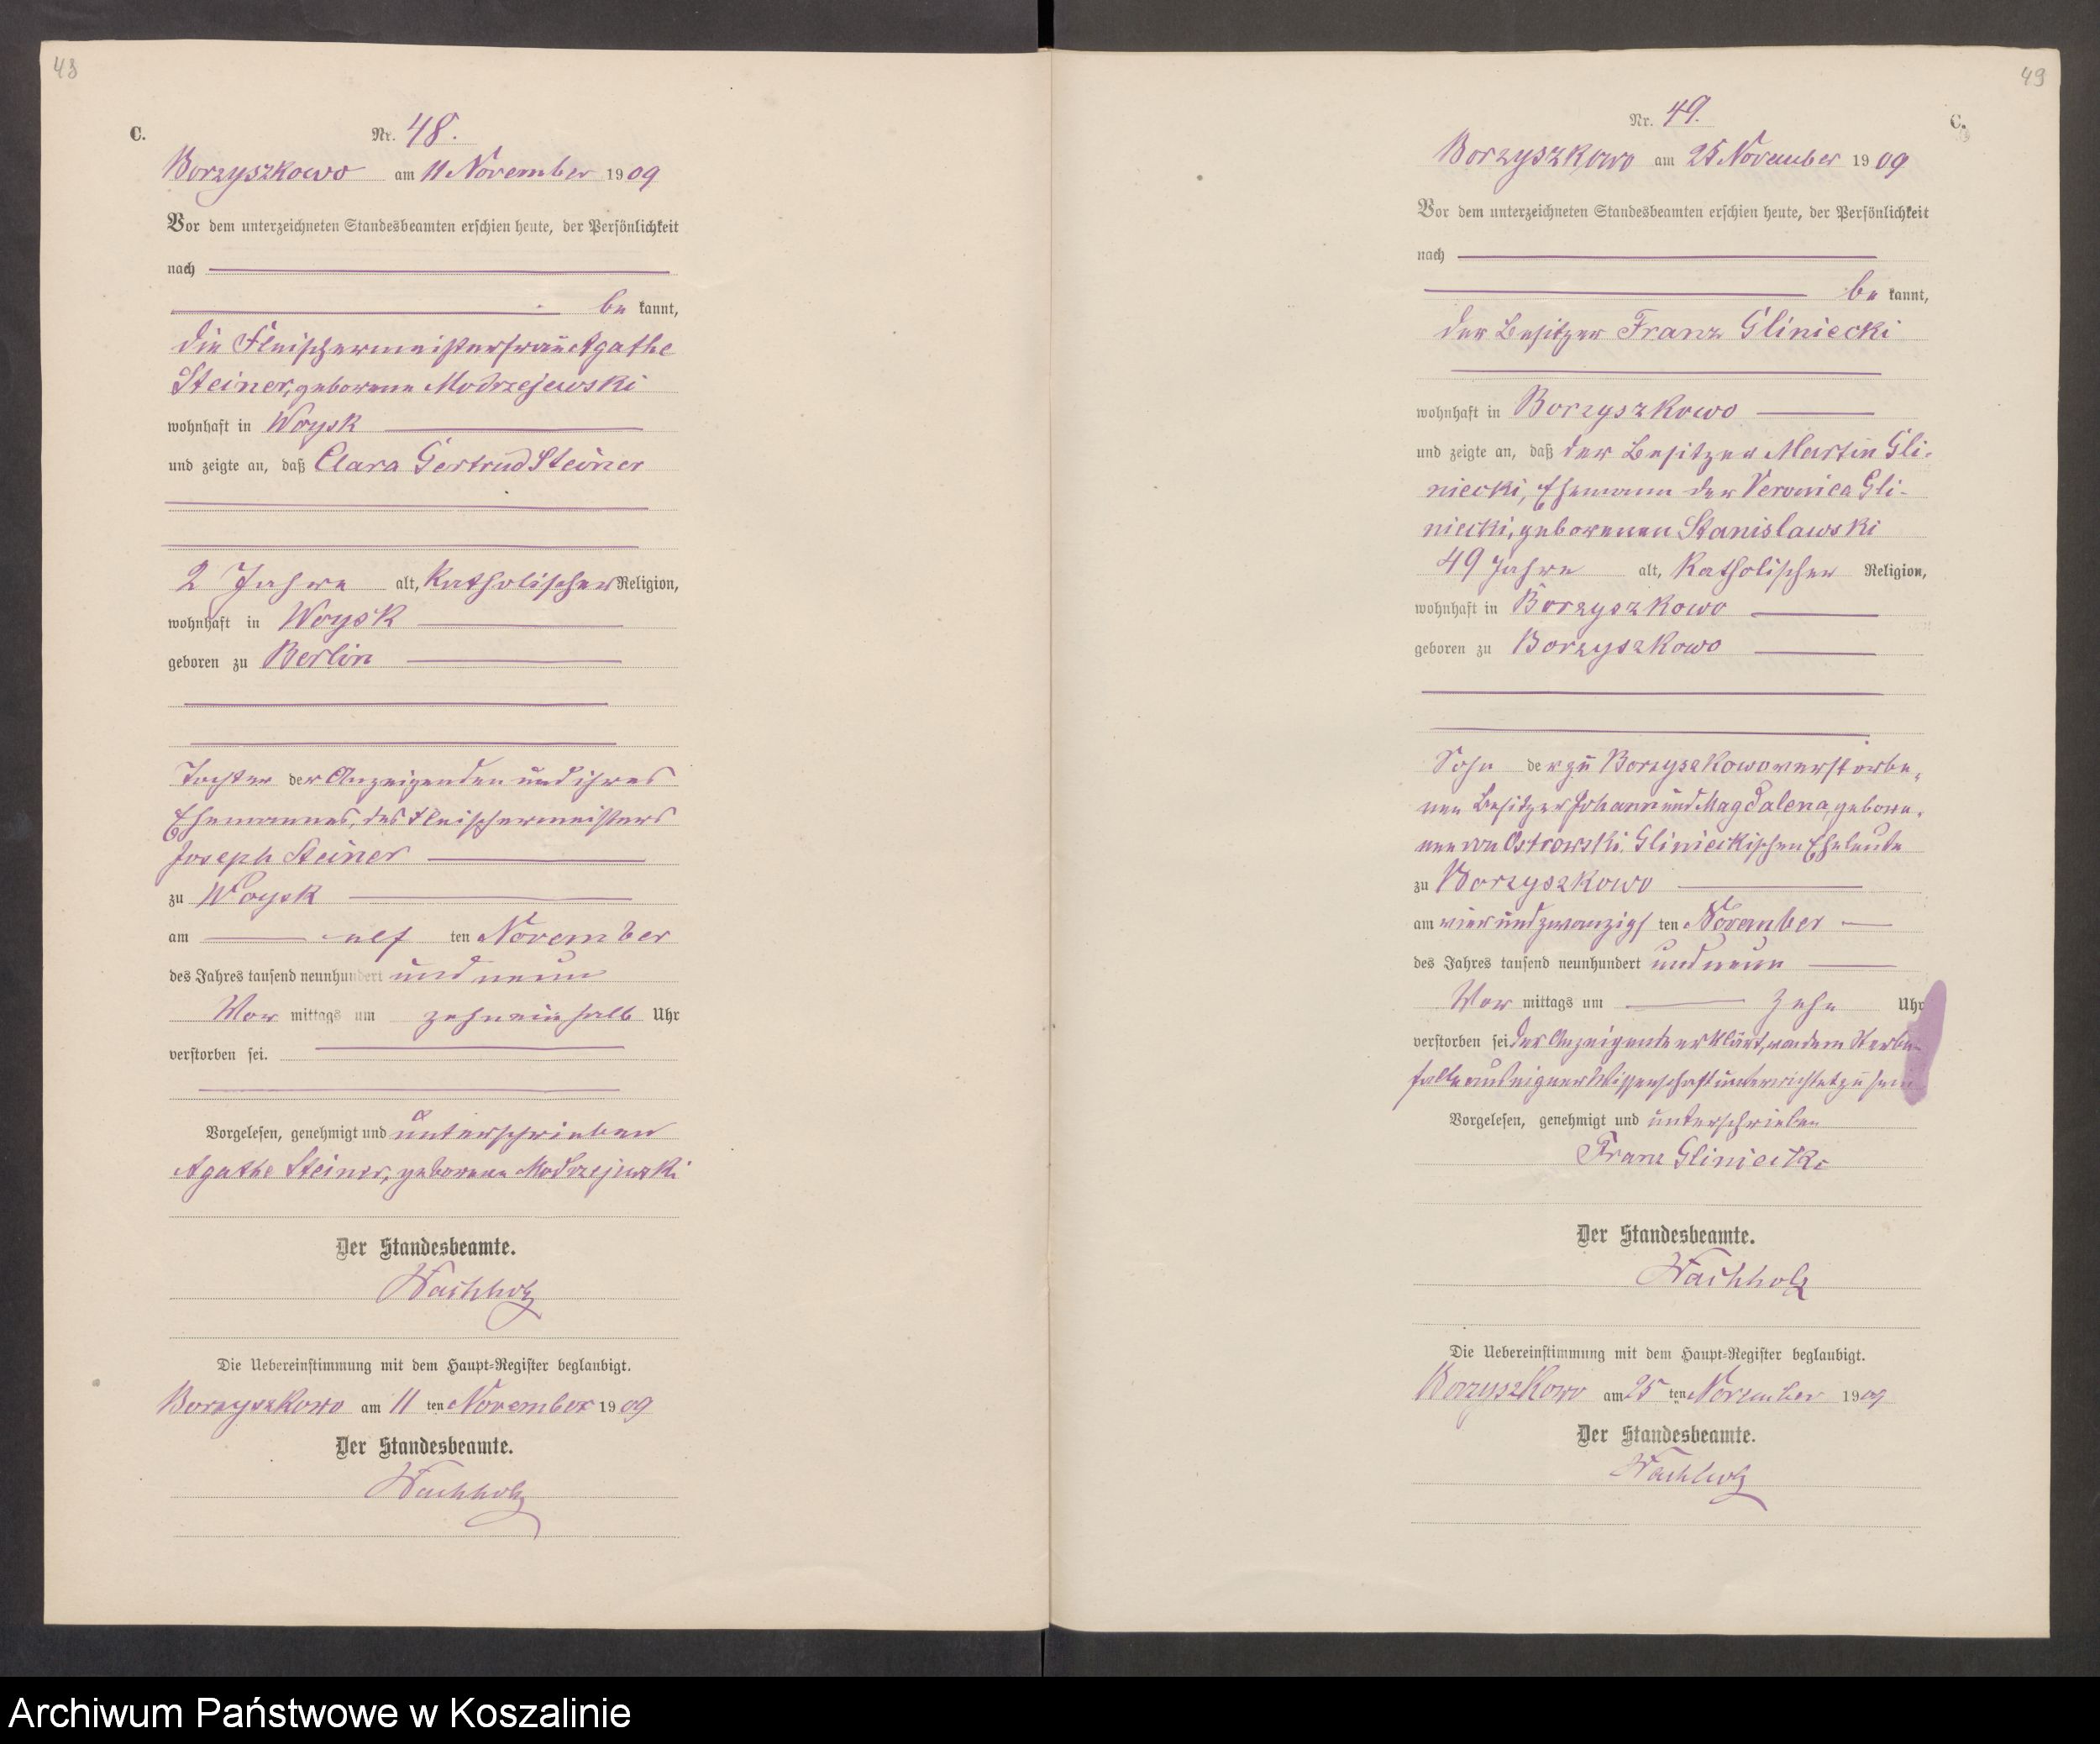 48
C.
Nr. 48.
Borzyszkowo am 11 November 1909
Vor dem unterzeichneten Standesbeamten erschien heute, der Persönlichkeit
nach
be kannt,
die Fleischermeisterfrau Agathe
Steiner, geborene Modrzejewski
wohnhaft in Woysk
und zeigte an, daß Clara Gertrud Steiner
2 Jahre alt, katholischer Religion,
wohnhaft in Woysk
geboren zu Berlin
Tochter der Anzeigenden und ihres
Ehemannes, des Fleischermeisters
Joseph Steiner
zu Woysk
am elf ten November
des Jahres tausend neunhundert und neun
Vor mittags um zehneinhalb Uhr
verstorben sei.
Vorgelesen, genehmigt und unterschrieben
Agathe Steiner, geborene Modrzejewski
Der Standesbeamte.
Wachholz
Die Uebereinstimmung mit dem Haupt-Register beglaubigt.
Borzyszkowo am 11 ten November 1909
Der Standesbeamte.
Wachholz
49
Nr. 49.
C.
Borzyszkowo am 25 November 1909
Vor dem unterzeichneten Standesbeamten erschien heute, der Persönlichkeit
nach
be kannt,
der Besitzer Franz Gliniecki
wohnhaft in Borzyszkowo
und zeigte an, daß der Besitzer Martin Gli-
niecki, Ehemann der Veronica Gli-
niecki, geborenen Stanislawski
49 Jahre alt, katholischer Religion,
wohnhaft in Borzyszkowo
geboren zu Borzyszkowo
Sohn der zu Borzyszkowo verstorbe-
nen Besitzer Johann und Magdalena, gebore-
nen von Ostrowski, Glinieckischen Eheleute
zu Borzyszkowo
am vierundzwanzigs ten November
des Jahres tausend neunhundert und neun
Vor mittags um zehn Uhr
verstorben sei der Anzeigende erklärt, von dem Sterbe-
falle aus eigener Wissenschaft unterrichtet zu sein
Vorgelesen, genehmigt und unterschrieben
Franz Gliniecki
Der Standesbeamte.
Wachholz
Die Uebereinstimmung mit dem Haupt-Register beglaubigt.
Borzyszkowo am 25 ten November 1909
Der Standesbeamte.
Wachholz
Archiwum Państwowe w Koszalinie